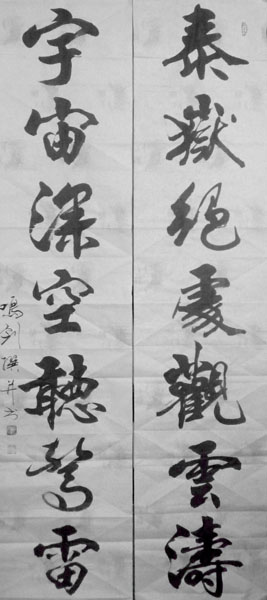 泰嶽絕處觀雲濤
宇宙深空聽驚雷
鳴劍撰并書